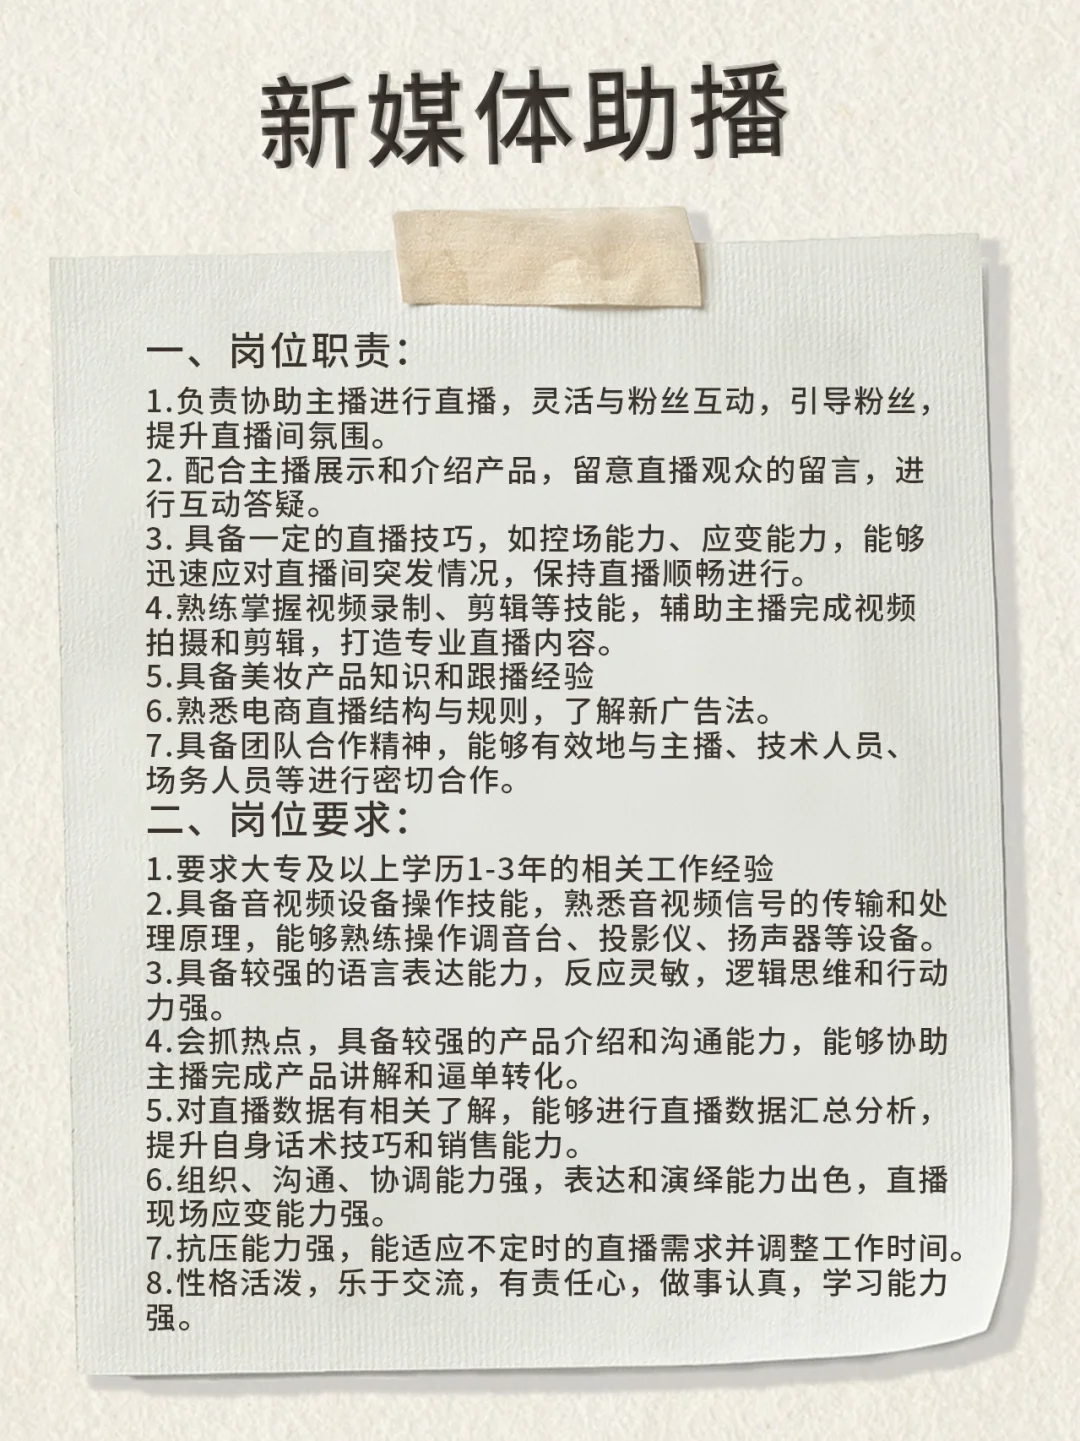 新媒体助播
一、岗位职责：
1.负责协助主播进行直播，灵活与粉丝互动，引导粉丝，
提升直播间氛围。
2. 配合主播展示和介绍产品，留意直播观众的留言，进
行互动答疑。
3. 具备一定的直播技巧，如控场能力、应变能力，能够
迅速应对直播间突发情况，保持直播顺畅进行。
4.熟练掌握视频录制、剪辑等技能，辅助主播完成视频
拍摄和剪辑，打造专业直播内容。
5.具备美妆产品知识和跟播经验
6.熟悉电商直播结构与规则，了解新广告法。
7.具备团队合作精神，能够有效地与主播、技术人员、
场务人员等进行密切合作。
二、岗位要求：
1.要求大专及以上学历1-3年的相关工作经验
2.具备音视频设备操作技能，熟悉音视频信号的传输和处
理原理，能够熟练操作调音台、投影仪、扬声器等设备。
3.具备较强的语言表达能力，反应灵敏，逻辑思维和行动
力强。
4.会抓热点，具备较强的产品介绍和沟通能力，能够协助
主播完成产品讲解和逼单转化。
5.对直播数据有相关了解，能够进行直播数据汇总分析，
提升自身话术技巧和销售能力。
6.组织、沟通、协调能力强，表达和演绎能力出色，直播
现场应变能力强。
7.抗压能力强，能适应不定时的直播需求并调整工作时间。
8.性格活泼，乐于交流，有责任心，做事认真，学习能力
强。